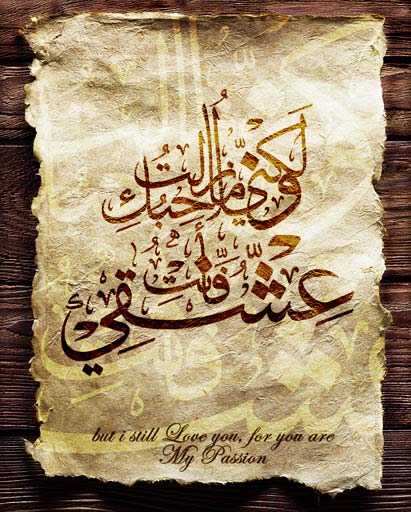 ولكني ما زلت أحبك
فأنت
عشقي
but i still Love you, for you are
My Passion